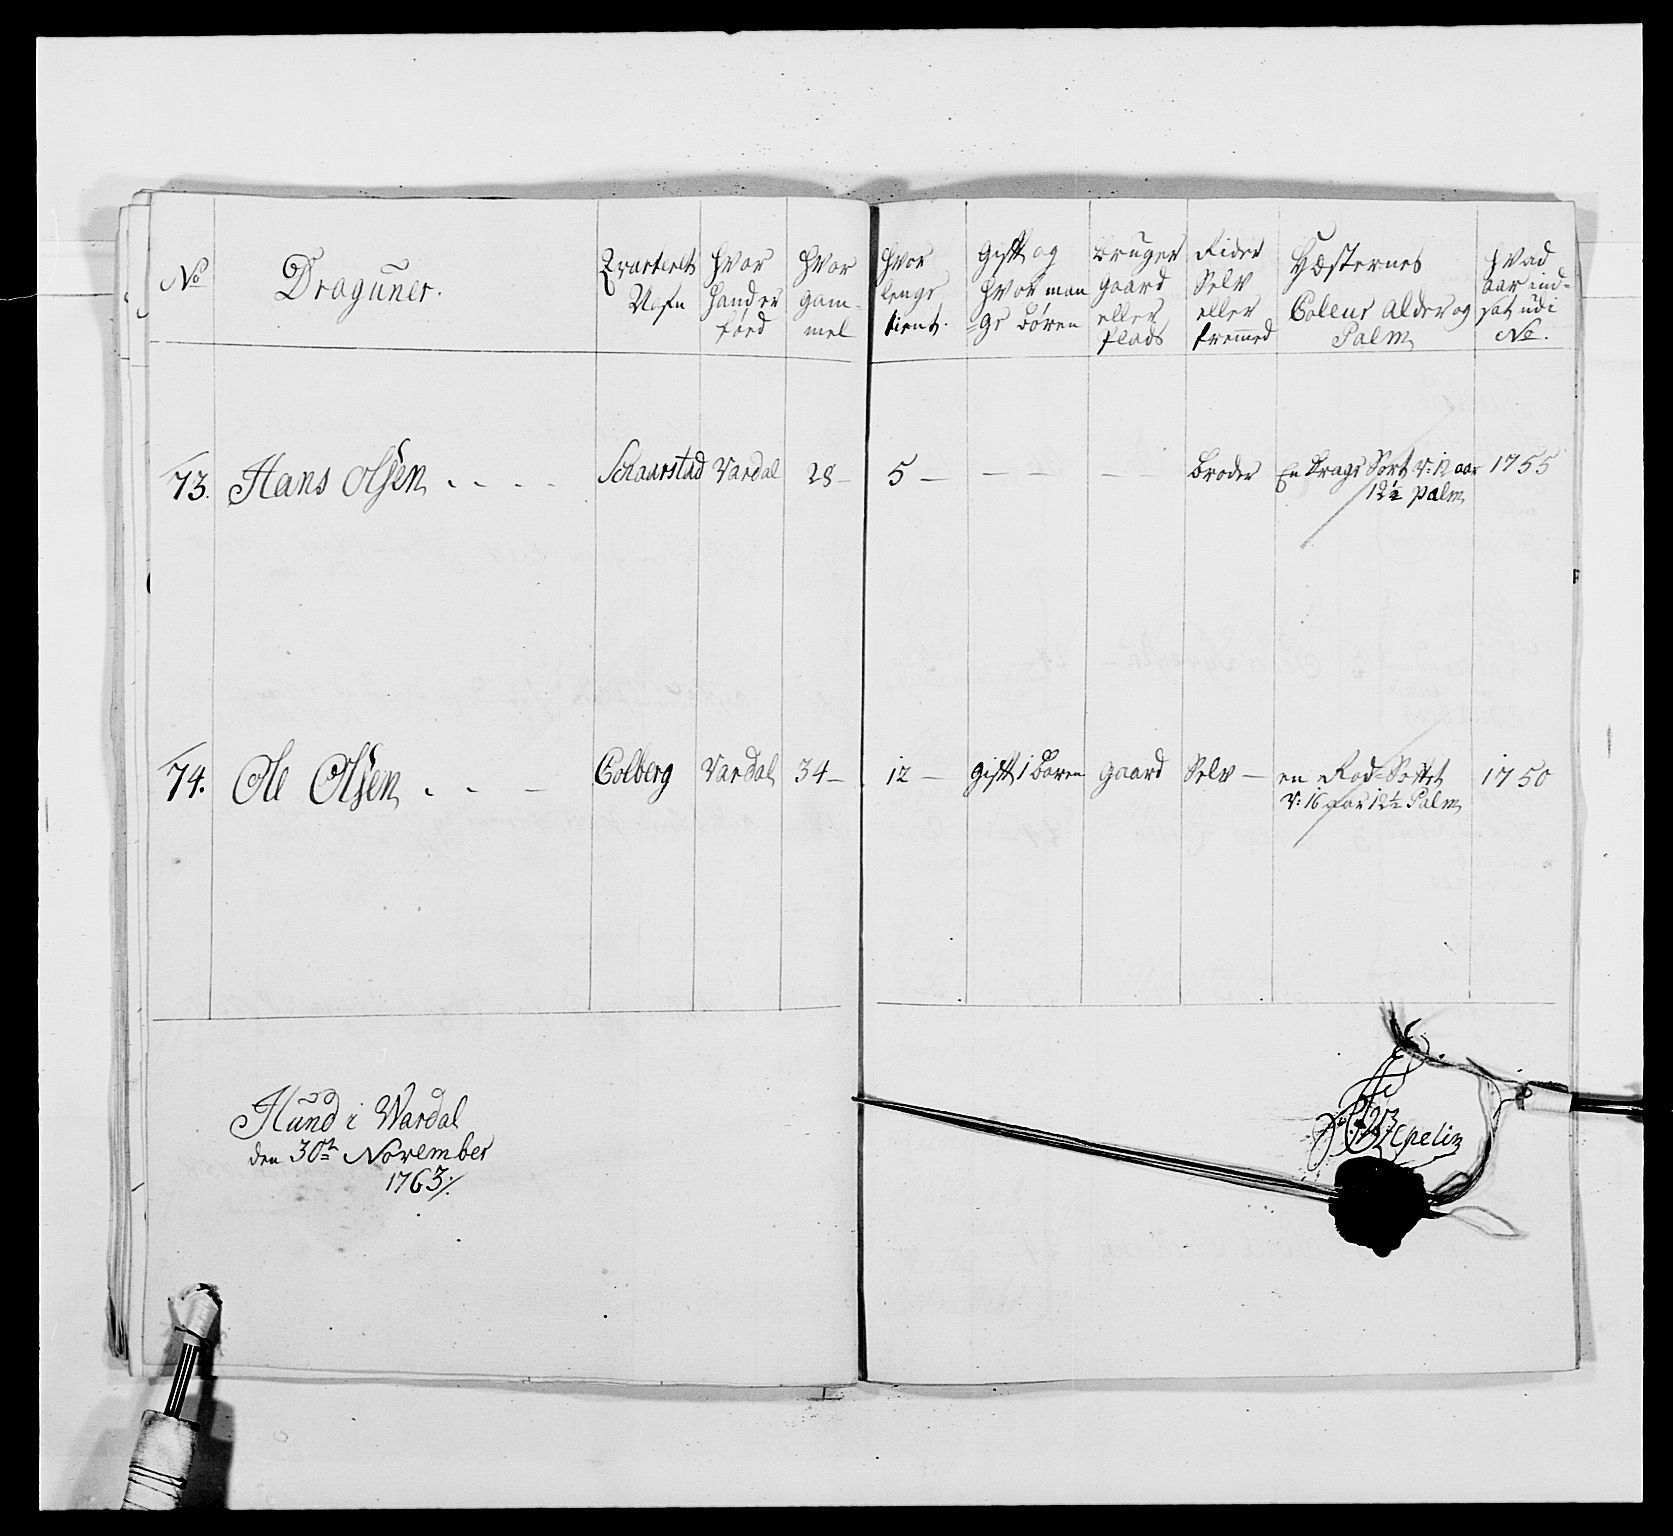 No
Dragüner.
Qvarterets Nafn
Hvor Hand er föed
Hvor gam- mel
Hvor lenge tient.
Gift og Hvor man ge Bören
Bruger Gaard eller Plads
Rider Selv eller fremmed
Hæsternes Coleur Alder og Palm
Hvad Aar ind- sat udi No.
73. Hans Olsen Schaarstad Vardal 28 5 — — — — Broder En Brags Sort v: 12 aar 1755
12½ palm
74. Ole Olsen Colberg Vardal 34 12 Gift 1 Baren Gaard Selv en Rod=Sottet 1750
v: 16 aar 12½ Palm
Hünd i Wardal
den 30te November
1763